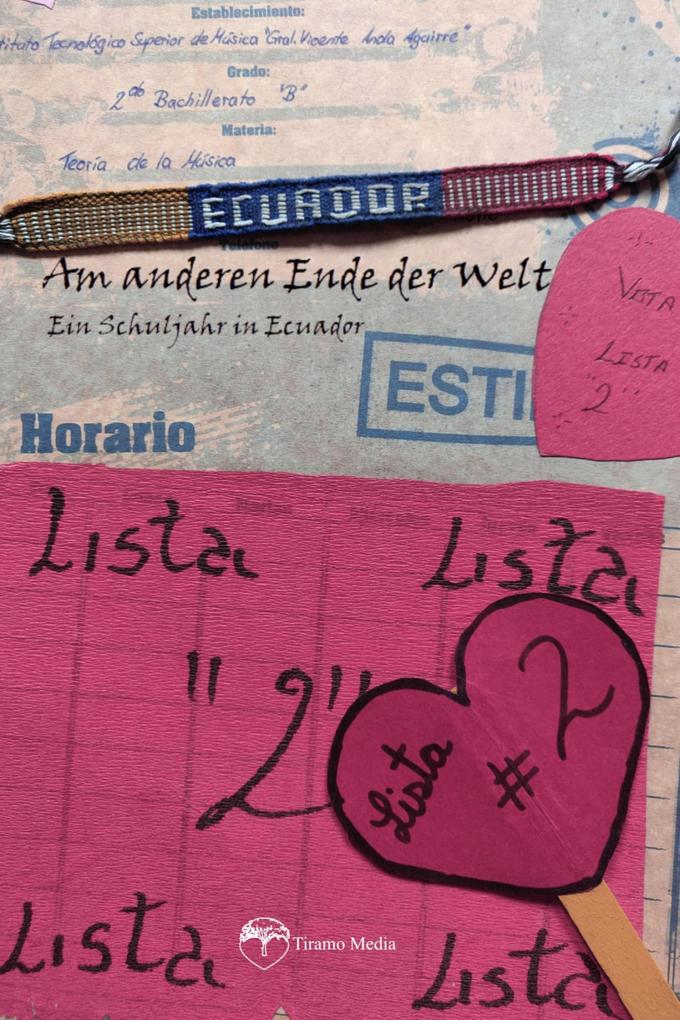 Establecimiento:
Tecnológico Superior de Música "Gral. Vicente Anda Aguirre"
Grado:
2do Bachillerato "B"
Materia:
Teoría de la Música
ECUADOR
Teléfono
Am anderen Ende der Welt
Ein Schuljahr in Ecuador
VOTA
LISTA
"2"
ESTI
Horario
Lista
Lista
"2"
Lista
#
2
Lista
Lista
Tiramo Media